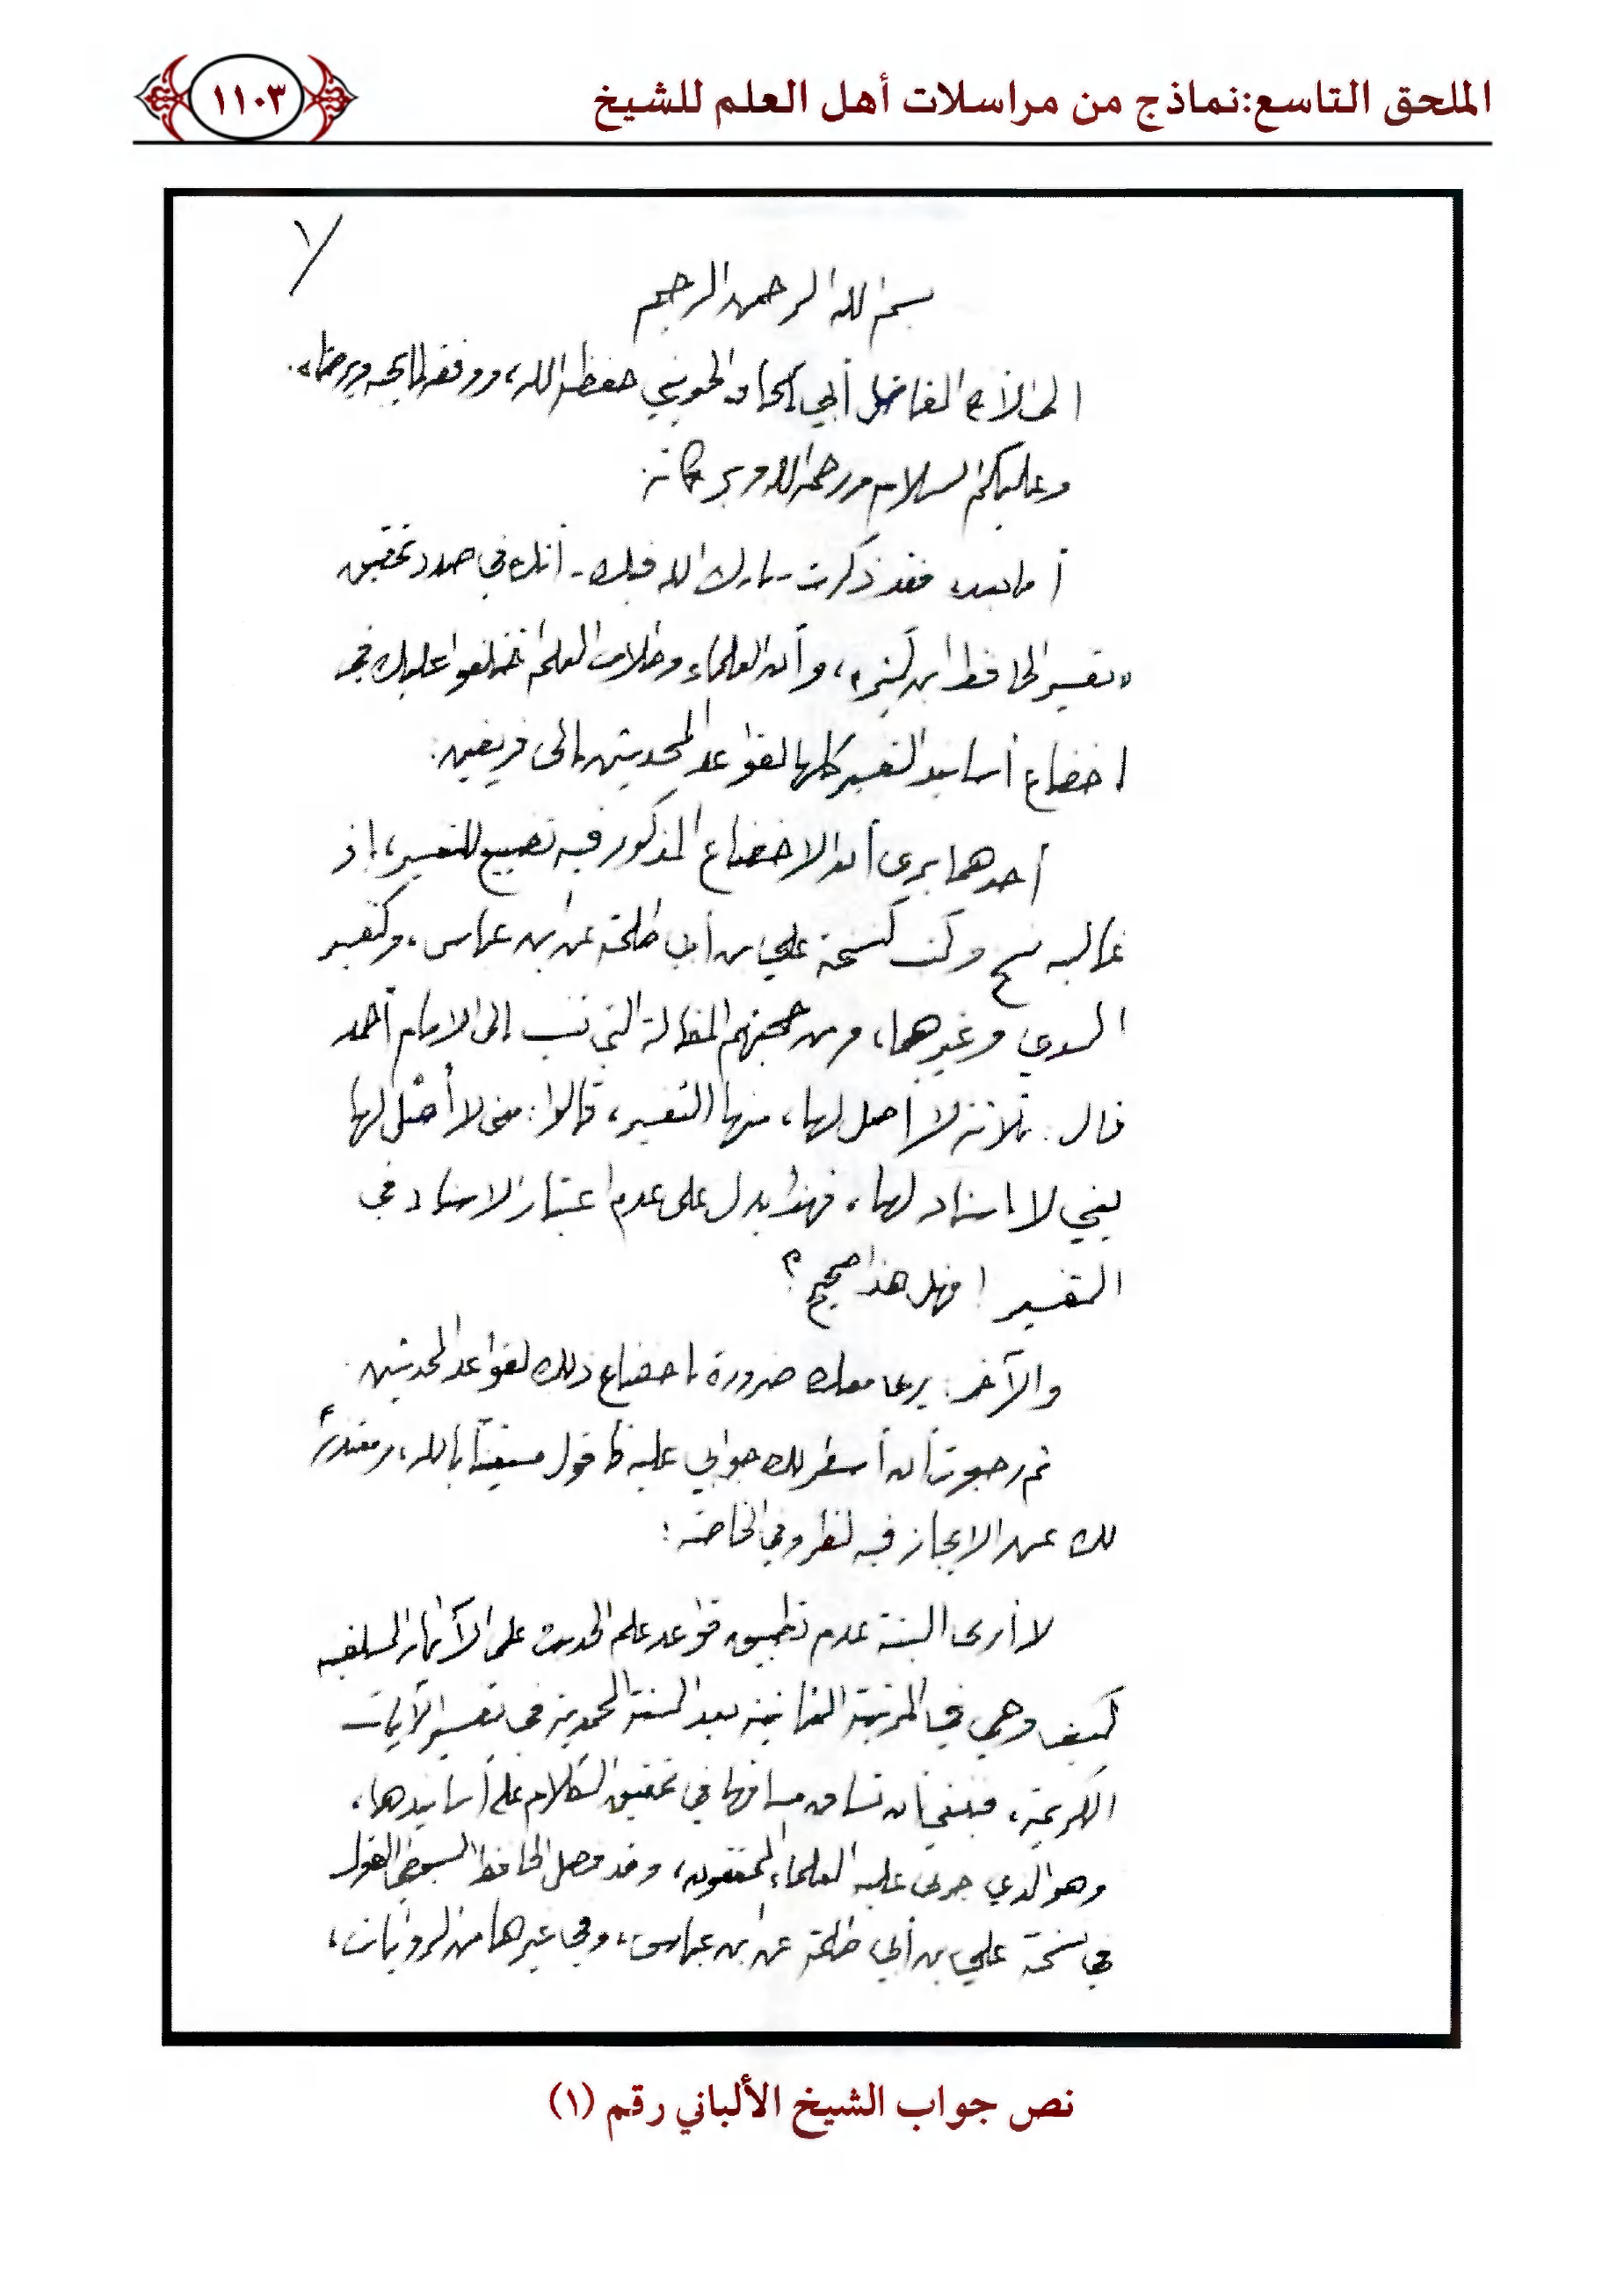 الملحق التاسع:نماذج من مراسلات أهل العلم للشيخ
١١٠٣
١/
بسم الله الرحمن الرحيم
إلى الأخ الفاضل أبي إسحاق الحويني حفظه الله، ووفقه لما يحبه ويرضاه.
وعليكم السلام ورحمة الله وبركاته:
أما بعد، فقد ذكرت -بارك الله فيك- أنك في صدد تحقيق
«تفسير الحافظ ابن كثير»، وأن العلماء وطلاب العلم اختلفوا عليك في
إخضاع أسانيد التفسير كلها لقواعد المحدثين إلى فريقين:
أحدهما يرى أن الإخضاع المذكور فيه تضييع للتفسير، إذ
غالبه نسخ وكتب كنسخة علي بن أبي طلحة عن ابن عباس، وكتفسير
السدي وغيرهما، ومن حجتهم المقالة التي تنسب إلى الإمام أحمد
قال: ثلاثة لا أصل لها، منها التفسير، قالوا: معنى لا أصل لها
يعني لا إسناد لها، فهذا يدل على عدم اعتبار الإسناد في
التفسير! فهل هذا صحيح؟
والآخر: يرى معك ضرورة إخضاع ذلك لقواعد المحدثين.
ثم رجوت أن أسطر لك جوابي عليه فأقول مستعيناً بالله، ومعتذراً
لك عن الإيجاز فيه لظروفي الخاصة:
لا أرى البتة عدم تطبيق قواعد علم الحديث على الآثار السلفية
كيف وهي في المرتبة الثانية بعد السنة المحمدية في تفسير الآيات
الكريمة، فينبغي أن تساق مساقها في تحقيق الكلام على أسانيدها،
وهو الذي جرى عليه العلماء المحققون، وقد فصل الحافظ السيوطي القول
في نسخة علي بن أبي طلحة عن ابن عباس، وفي غيرها من الروايات،
نص جواب الشيخ الألباني رقم (١)